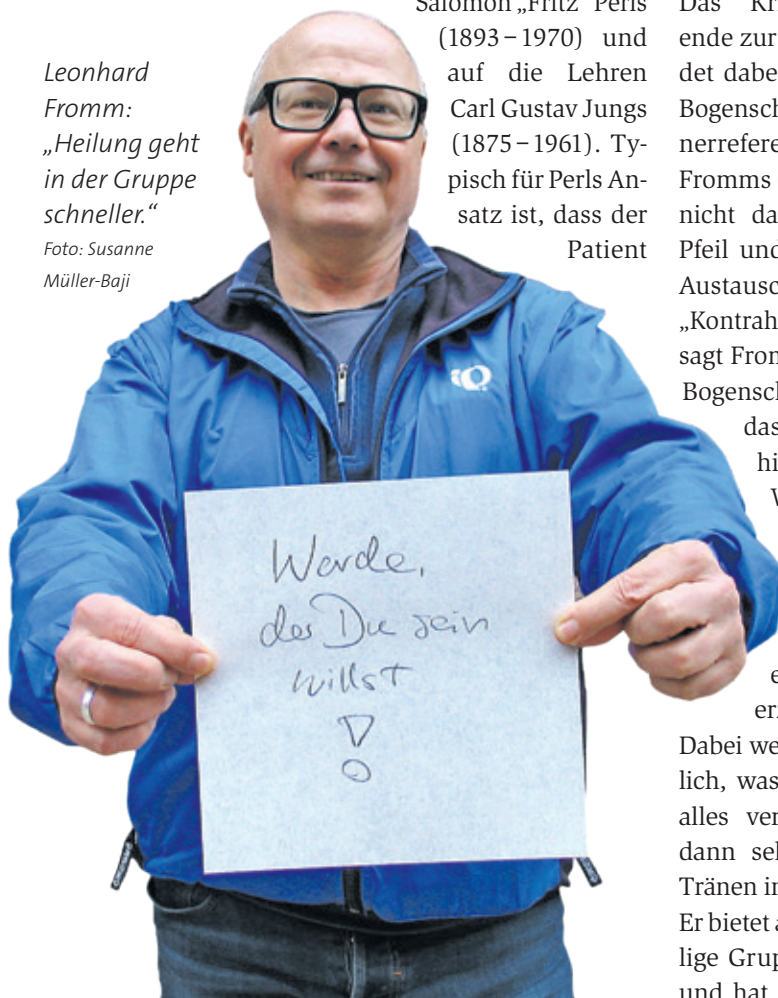 Leonhard
Fromm:
„Heilung geht
in der Gruppe
schneller.“
Foto: Susanne
Müller-Baji
Salomon „Fritz“ Perls
(1893 – 1970) und
auf die Lehren
Carl Gustav Jungs
(1875 – 1961). Ty-
pisch für Perls An-
satz ist, dass der
Patient
Werde,
der Du sein
willst
!
Das Kr
ende zur
det dabe
Bogensch
nerrefere
Fromms
nicht da
Pfeil und
Austausc
„Kontrah
sagt Fron
Bogensch
das
hi
W
e
er
Dabei we
lich, was
alles ver
dann sel
Tränen in
Er bietet a
lige Grup
und hat